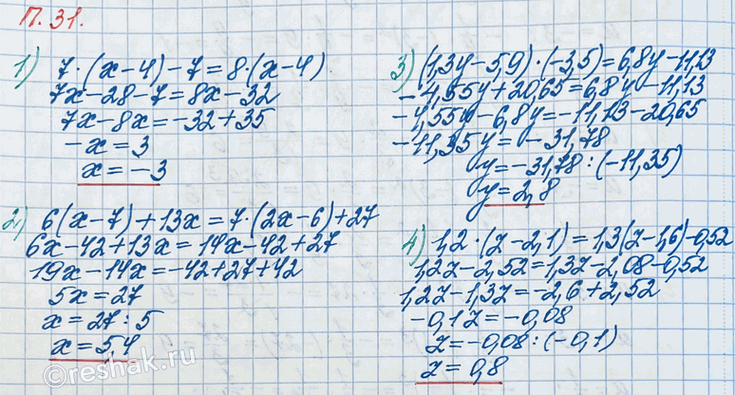 П. 31.
1) 7·(x-4)-7=8·(x-4)
7x-28-7=8x-32
7x-8x=-32+35
-x=3
x=-3
2) 6(x-7)+13x=7·(2x-6)+27
6x-42+13x=14x-42+27
19x-14x=-42+27+42
5x=27
x=27:5
x=5,4
3) (1,3y-5,9)·(-3,5)=6,8y-11,13
-4,55y+20,65=6,8y-11,13
-4,55y-6,8y=-11,13-20,65
-11,35y=-31,78
y=-31,78:(-11,35)
y=2,8
4) 1,2·(z-2,1)=1,3(z-1,6)-0,52
1,2z-2,52=1,3z-2,08-0,52
1,2z-1,3z=-2,6+2,52
-0,1z=-0,08
z=-0,08:(-0,1)
z=0,8
©reshak.ru